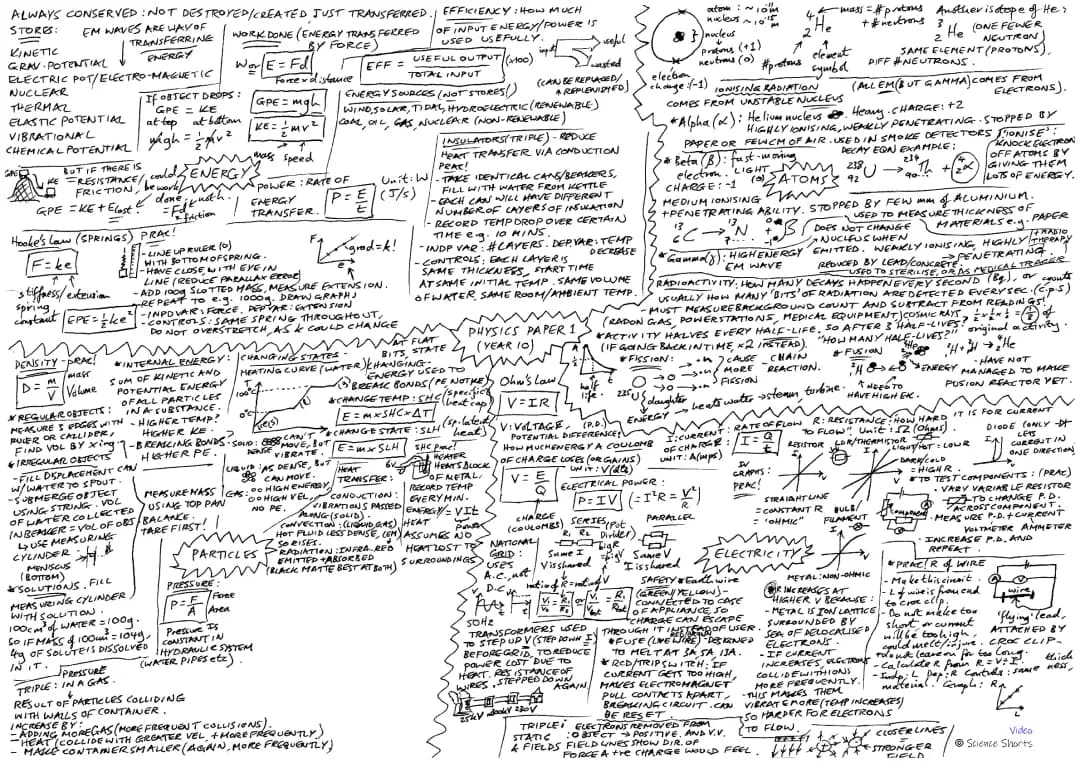 ALWAYS CONSERVED: NOT DESTROYED/CREATED, JUST TRANSFERRED.
STORES:
KINETIC
GRAV. POTENTIAL
ELECTRIC POT/ELECTRO-MAGNETIC
NUCLEAR
THERMAL
ELASTIC POTENTIAL
VIBRATIONAL
CHEMICAL POTENTIAL
EM WAVES ARE WAY OF
TRANSFERRING
ENERGY
WORK DONE (ENERGY TRANSFERRED
BY FORCE)
W or E = Fd
Force distance
EFFICIENCY: HOW MUCH
OF INPUT ENERGY/POWER IS
USED USEFULLY.
input
useful
wasted
EFF = USEFUL OUTPUT / TOTAL INPUT (x100)
IF OBJECT DROPS:
GPE = KE
at top at bottom
mgh = ½mv²
GPE = mgh
KE = ½mv²
mass speed
ENERGY SOURCES (NOT STORES!)
(CAN BE REPLACED/
REPLENISHED)
WIND, SOLAR, TIDAL, HYDROELECTRIC (RENEWABLE)
COAL, OIL, GAS, NUCLEAR (NON-RENEWABLE)
GPE
KE
BUT IF THERE IS
RESISTANCE/
FRICTION,
GPE = KE + Elost
could
be work
done
= Fd
friction
ENERGY
POWER: RATE OF
ENERGY
TRANSFER.
P = E/t
Unit: W
(J/s)
INSULATORS (TRIPLE) - REDUCE
HEAT TRANSFER VIA CONDUCTION
PRAC!
- TAKE IDENTICAL CANS/BEAKERS,
FILL WITH WATER FROM KETTLE
- EACH CAN WILL HAVE DIFFERENT
NUMBER OF LAYERS OF INSULATION
- RECORD TEMP DROP OVER CERTAIN
TIME e.g. 10 MINS.
- INDP VAR: #LAYERS. DEP. VAR: TEMP
DECREASE
- CONTROLS: EACH LAYER IS
SAME THICKNESS, START TIME
AT SAME INITIAL TEMP. SAME VOLUME
OF WATER, SAME ROOM/AMBIENT TEMP.
Hooke's Law (SPRINGS) PRAC!
F = ke
stiffness/ extension
spring
constant
EPE = ½ke²
- LINE UP RULER (0)
WITH BOTTOM OF SPRING.
- HAVE CLOSE WITH EYE IN
LINE (REDUCE PARALLAX ERROR)
- ADD 100g SLOTTED MASS, MEASURE EXTENSION.
REPEAT TO e.g. 1000g. DRAW GRAPH.
- INPD VAR: FORCE. DEP VAR: EXTENSION
- CONTROLS: SAME SPRING THROUGHOUT,
DO NOT OVERSTRETCH, AS k COULD CHANGE
F
grad = k!
e
atom: ~10⁻¹⁰m
nucleus ~10⁻¹⁵m
nucleus
protons (+1)
neutrons (0)
electron
charge: (-1)
4
2 He
mass = #protons
+ #neutrons
#protons
element
symbol
Another isotope of He:
3
2 He (ONE FEWER
NEUTRON)
SAME ELEMENT (PROTONS),
DIFF #NEUTRONS.
IONISING RADIATION
(ALL EM (BUT GAMMA) COMES FROM
ELECTRONS).
COMES FROM UNSTABLE NUCLEUS
* Alpha (α): Helium nucleus Heavy. CHARGE: +2
HIGHLY IONISING, WEAKLY PENETRATING - STOPPED BY
PAPER OR FEW CM OF AIR. USED IN SMOKE DETECTORS
'IONISE':
KNOCK ELECTRON
OFF ATOMS BY
GIVING THEM
LOTS OF ENERGY.
DECAY EQN EXAMPLE:
238
92 U
234
90
4
2 α
* Beta (β): fast-moving
electron. LIGHT
CHARGE: -1
ATOMS
MEDIUM IONISING
+ PENETRATING ABILITY. STOPPED BY FEW mm of ALUMINIUM.
USED TO MEASURE THICKNESS OF
MATERIALS e.g. PAPER
13
6 C → 13
7 N + 0
-1 β
DOES NOT CHANGE
NUCLEUS WHEN
EMITTED. WEAKLY IONISING, HIGHLY
PENETRATING.
+ RADIO
THERAPY
* Gamma (γ): HIGH ENERGY
EM WAVE
REDUCED BY LEAD/CONCRETE.
USED TO STERILISE, OR AS MEDICAL TRACER
RADIOACTIVITY: HOW MANY DECAYS HAPPEN EVERY SECOND (Bq), or
USUALLY HOW MANY 'BITS' OF RADIATION ARE DETECTED EVERY SEC.
counts
(c.p.s)
- MUST MEASURE BACKGROUND COUNT AND SUBTRACT FROM READINGS!
(RADON GAS, POWER STATIONS, MEDICAL EQUIPMENT) COSMIC RAYS
* ACTIVITY HALVES EVERY HALF-LIFE. SO AFTER 3 HALF-LIVES?
½ x ½ x ½ = (⅛) of
original activity.
(IF GOING BACK IN TIME, x2 INSTEAD). "HOW MANY HALF-LIVES?"
PHYSICS PAPER 1
(YEAR 10)
half
life.
t
* FISSION:
235 U
daughter
CAUSE CHAIN
MORE REACTION.
FISSION
ENERGY → heats water → steam turbine.
* FUSION
ENERGY
* NEED TO
HAVE HIGH EK.
- HAVE NOT
MANAGED TO MAKE
FUSION REACTOR YET.
DENSITY - PRAC!
D = m/V
mass
Volume
* REGULAR OBJECTS:
MEASURE 3 EDGES WITH
RULER OR CALLIPER,
FIND VOL BY x ing
* IRREGULAR OBJECTS
- FILL DISPLACEMENT CAN
W/ WATER TO SPOUT.
- SUBMERGE OBJECT
USING STRING. VOL
OF WATER COLLECTED
IN BEAKER = VOL OF OBJ
USE MEASURING
CYLINDER
MENISCUS
(BOTTOM)
* SOLUTIONS. FILL
MEASURING CYLINDER
WITH SOLUTION.
100cm³ OF WATER = 100g.
SO IF MASS OF 100cm³ = 104g,
4g OF SOLUTE IS DISSOLVED
IN IT.
MEASURE MASS
USING TOP PAN
BALANCE.
TARE FIRST!
* INTERNAL ENERGY:
SUM OF KINETIC AND
POTENTIAL ENERGY
OF ALL PARTICLES
IN A SUBSTANCE.
- HIGHER TEMP?
HIGHER KE.
- BREAKING BONDS
HIGHER PE.
CHANGING STATES -
HEATING CURVE (WATER)
T
100°C
0°C
AT FLAT
BITS, STATE
CHANGING -
ENERGY USED TO
BREAK BONDS (PE NOT KE)
* CHANGE TEMP: SHC (specific
heat cap)
E = m x SHC x ΔT
* CHANGE STATE: SLH (sp. latent
heat)
E = m x SLH
SOLID: CAN'T
MOVE, BUT
VIBRATE.
LIQUID: AS DENSE, BUT
CAN MOVE.
GAS: HIGH ENERGY
HIGH VEL.
NO PE.
HEAT
TRANSFER:
CONDUCTION:
VIBRATIONS PASSED
ALONG (SOLID)
CONVECTION: (LIQUID, GAS)
HOT FLUID LESS DENSE,
SO RISES.
RADIATION: INFRA-RED
EMITTED + ABSORBED
(BLACK MATTE BEST AT BOTH)
SHC PRAC!
HEATER
HEATS BLOCK
OF METAL.
RECORD TEMP
EVERY MIN.
ENERGY = VIt
power
ASSUMES NO
HEAT LOST TO
SURROUNDINGS
PARTICLES
PRESSURE:
P = F/A
Force
Area
PRESSURE IS
CONSTANT IN
HYDRAULIC SYSTEM
(WATER PIPES etc).
PRESSURE
TRIPLE: IN A GAS.
RESULT OF PARTICLES COLLIDING
WITH WALLS OF CONTAINER.
INCREASE BY:
- ADDING MORE GAS (MORE FREQUENT COLLISIONS).
- HEAT (COLLIDE WITH GREATER VEL. + MORE FREQUENTLY)
- MAKE CONTAINER SMALLER (AGAIN, MORE FREQUENTLY)
Ohm's Law
V = IR
V: VOLTAGE, (P.D.)
POTENTIAL DIFFERENCE:
HOW MUCH ENERGY A COULOMB
OF CHARGE LOSES (OR GAINS)
UNIT: V (olts)
V = E/Q
CHARGE
(COULOMBS)
I: CURRENT: RATE OF FLOW
OF CHARGE
UNIT: A (mps)
I = Q/t
ELECTRICAL POWER:
P = IV (= I²R = V²/R)
R: RESISTANCE: HOW HARD IT IS FOR CURRENT
TO FLOW". UNIT: Ω (Ohms).
IV
GRAPHS:
PRAC!
RESISTOR
STRAIGHT LINE
= CONSTANT R
= "OHMIC"
LDR/THERMISTOR
LIGHT/HOT: LOW R
DARK/COLD
= HIGH R.
BULB/
FILAMENT
DIODE (ONLY
LETS
CURRENT IN
ONE DIRECTION)
* TO TEST COMPONENTS: (PRAC)
- VARY VARIABLE RESISTOR
TO CHANGE P.D.
ACROSS COMPONENT.
- MEASURE P.D. + CURRENT
VOLTMETER AMMETER
- INCREASE P.D. AND
REPEAT.
SERIES
R₁ R₂
Same I
V is shared
Pot
Divider/
big R
= big V
PARALLEL
Same V
I is shared
ratio of R = ratio of V
V₁/V₂ = R₁/R₂ or V₁/Vtot = R₁/Rtot
NATIONAL
GRID:
USES
A.C., not
D.C.
50Hz
TRANSFORMERS USED
TO STEP UP V (STEP DOWN I)
BEFORE GRID, TO REDUCE
POWER LOST DUE TO
HEAT. RESISTANCE OF
WIRES. STEPPED DOWN
AGAIN.
25kV 400kV 230V
SAFETY * Earth wire
(GREEN/YELLOW) -
CONNECTED TO CASE
OF APPLIANCE, SO
CHARGE CAN ESCAPE
THROUGH IT INSTEAD OF USER.
* FUSE (LIVE WIRE) - DESIGNED
TO MELT AT 3A, 5A, 13A.
* RCD/TRIP SWITCH: IF
CURRENT GETS TOO HIGH,
MAKES ELECTROMAGNET
PULL CONTACTS APART,
BREAKING CIRCUIT. CAN
BE RESET
ELECTRICITY
METAL: NON-OHMIC
R INCREASES AT
HIGHER V BECAUSE:
- METAL IS ION LATTICE
SURROUNDED BY
SEA OF DELOCALISED
ELECTRONS.
- IF CURRENT
INCREASES, ELECTRONS
COLLIDE WITH IONS
MORE FREQUENTLY.
- THIS MAKES THEM
VIBRATE MORE (TEMP INCREASES)
SO HARDER FOR ELECTRONS
TO FLOW.
* PRAC! R OF WIRE
- Make this circuit.
- L of wire is from end
to croc clip.
- Do not make too
short, or current
will be too high,
could melt/injure
- Calculate R from R = V ÷ I.
- Indp: L Dep: R Controls: same
thick
ness,
material. Graph: R
L
wire
flying lead,
ATTACHED BY
CROC CLIP -
TRIPLE:
STATIC
& FIELDS
ELECTRONS REMOVED FROM
OBJECT → POSITIVE. AND V.V.
FIELD LINES SHOW DIR. OF
FORCE A +ve CHARGE WOULD FEEL.
CLOSER LINES
= STRONGER
FIELD
Video
© Science Shorts